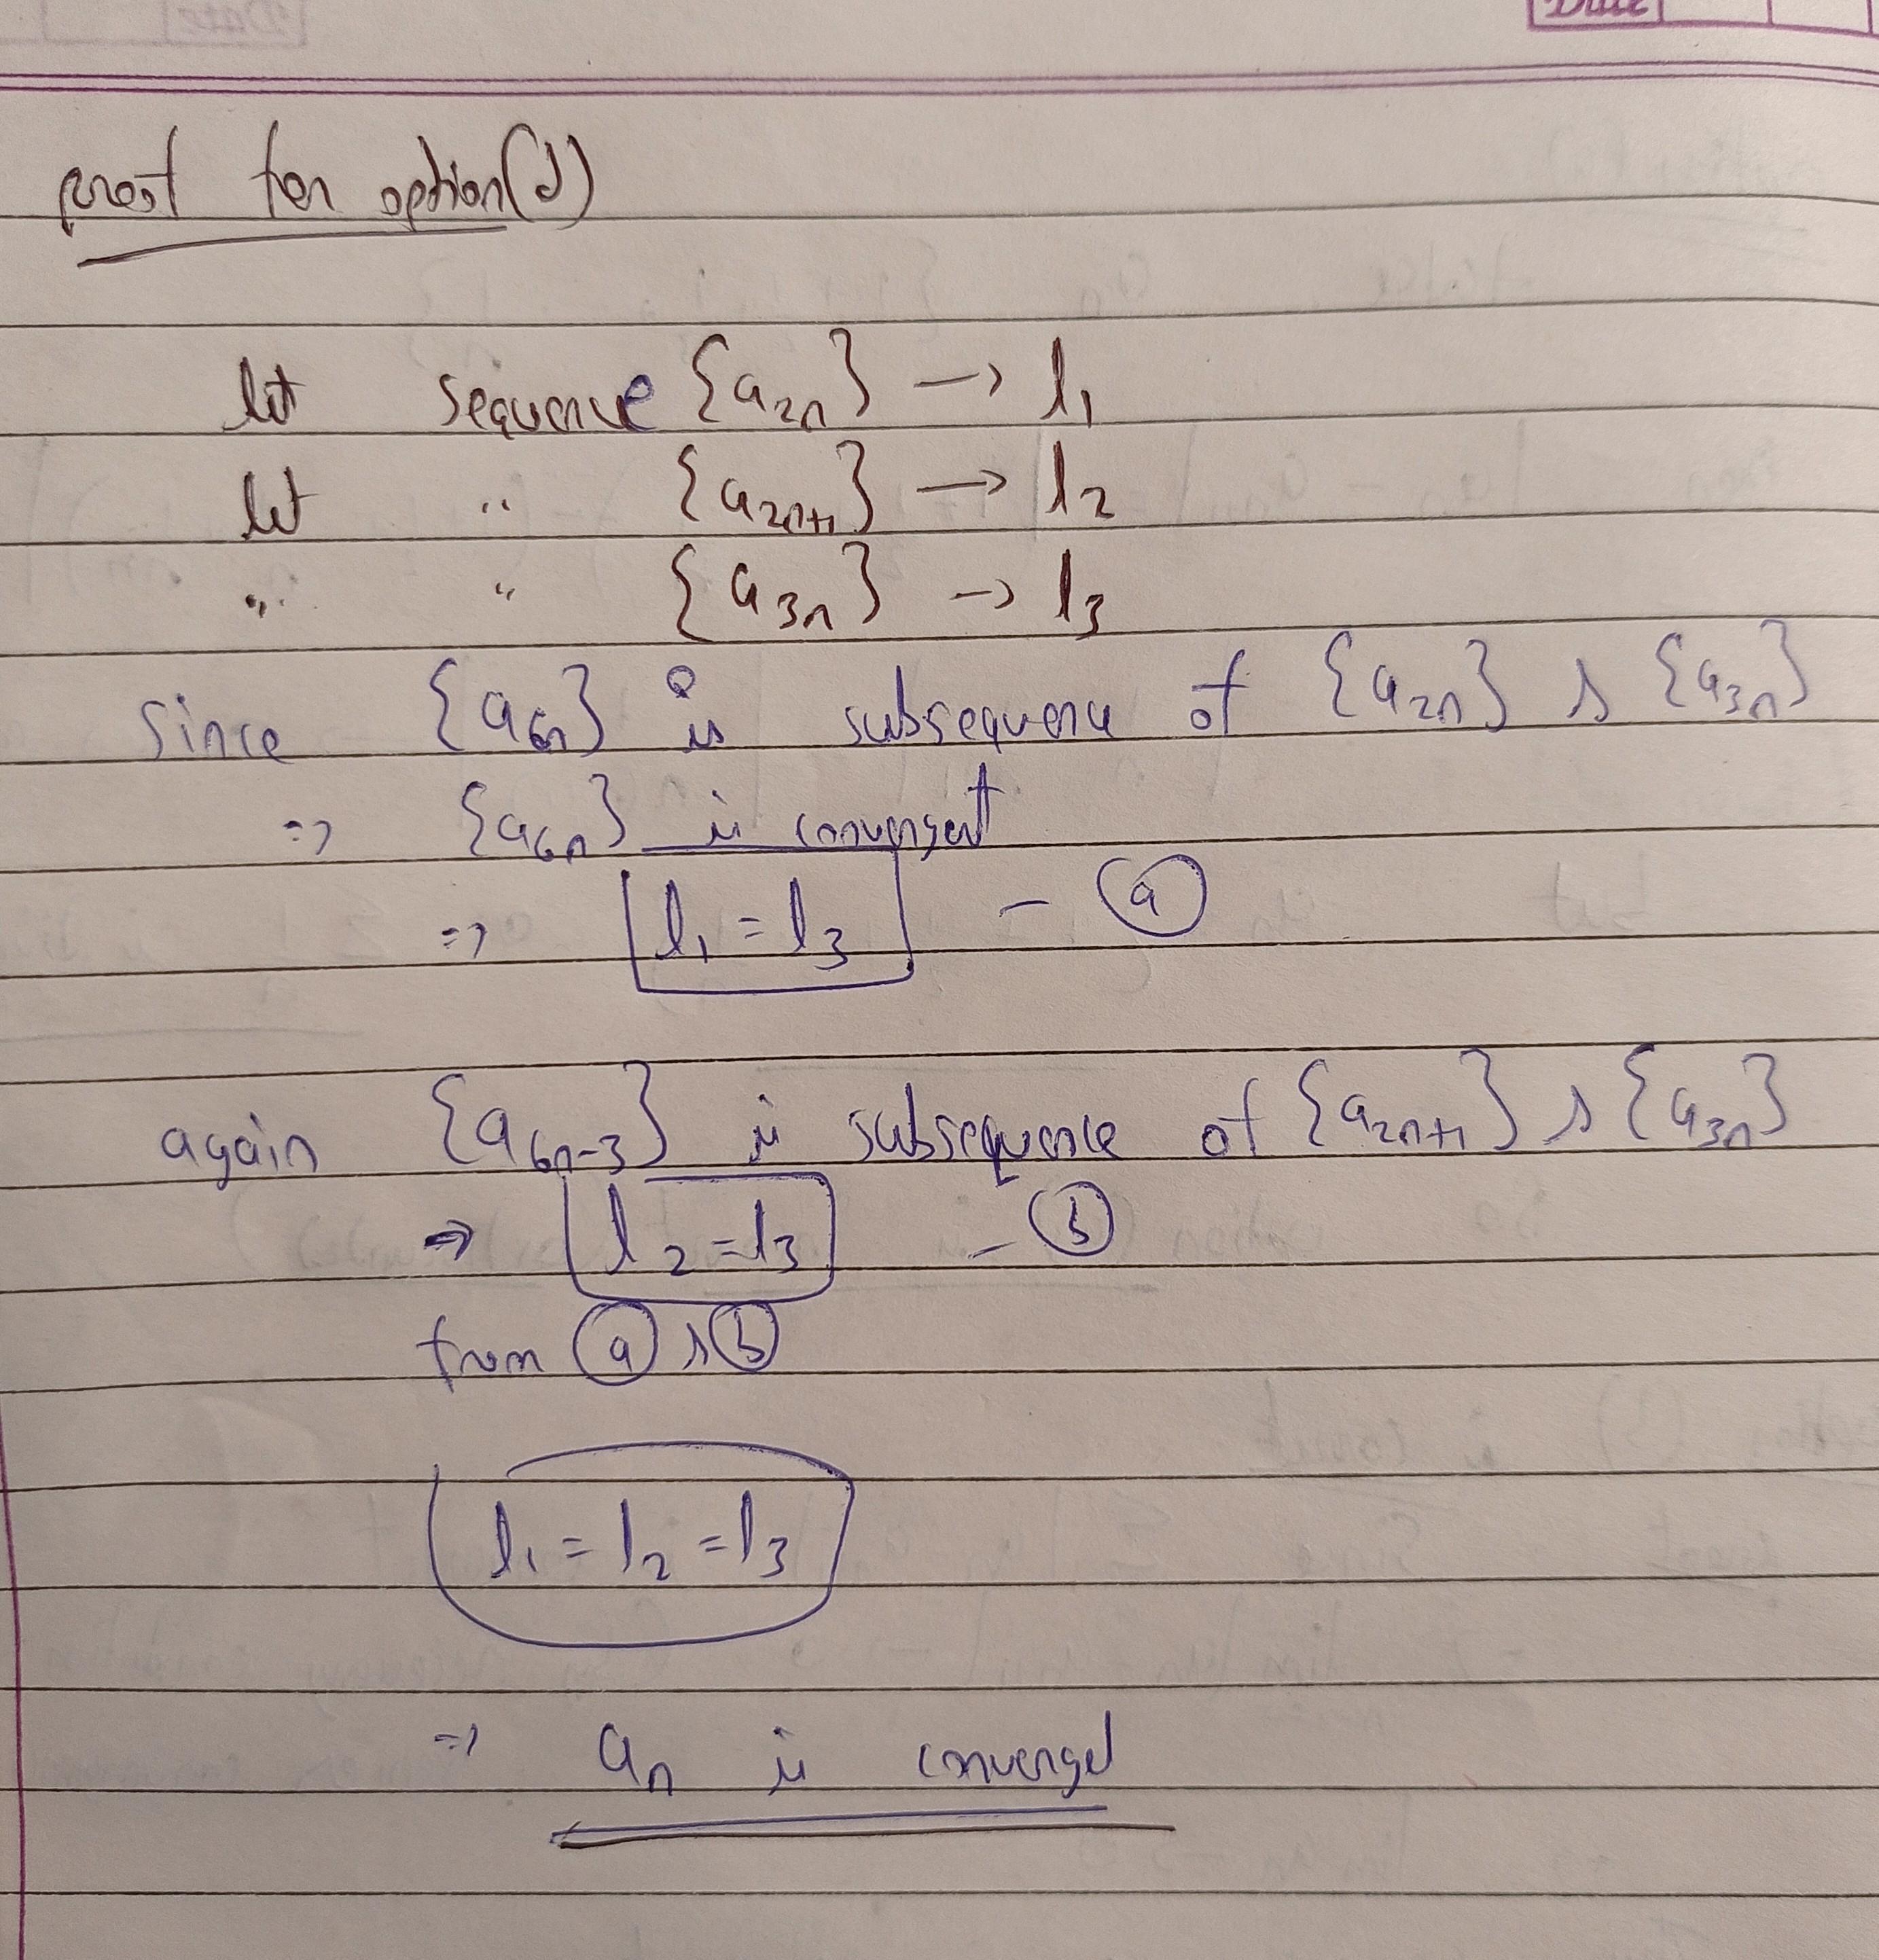 Date
proof for option(d)
let sequence {a₂ₙ} → l₁
let " {a₂ₙ₊₁} → l₂
" " {a₃ₙ} → l₃
since {a₆ₙ} is subsequence of {a₂ₙ} & {a₃ₙ}
⇒ {a₆ₙ} is convergent
⇒ l₁ = l₃ — ⓐ
again {a₆ₙ₋₃} is subsequence of {a₂ₙ₊₁} & {a₃ₙ}
⇒ l₂ = l₃ — ⓑ
from ⓐ & ⓑ
l₁ = l₂ = l₃
⇒ aₙ is